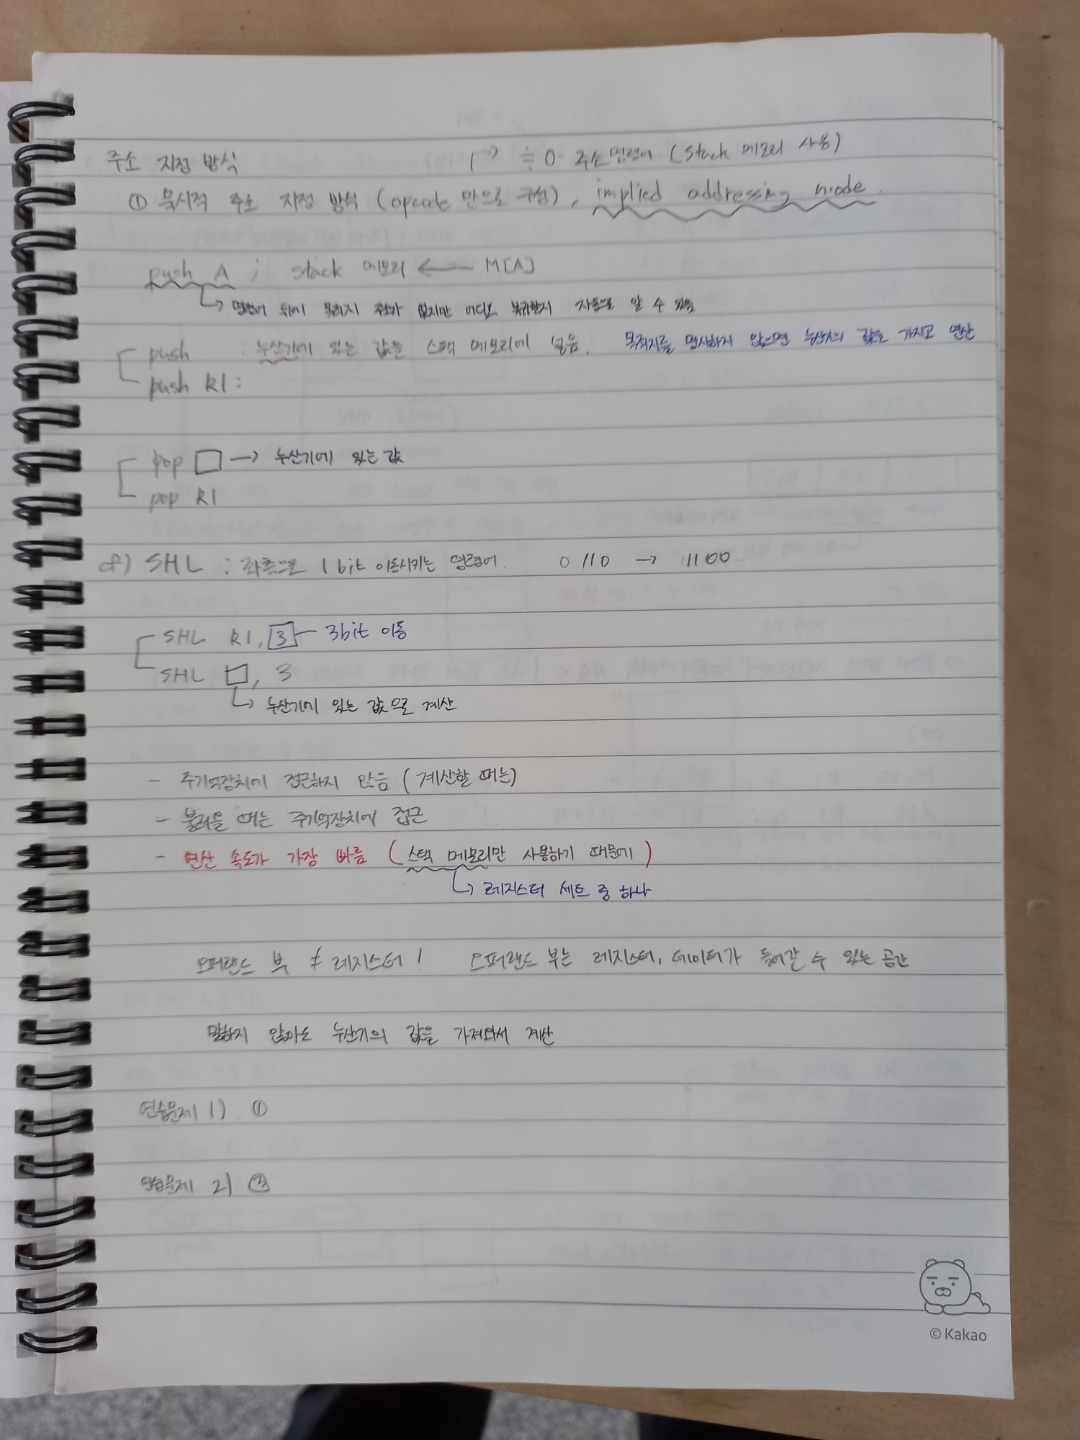 주소 지정 방식
↱ ≒ 0-주소명령어 (stack 메모리 사용)
① 묵시적 주소 지정 방식 (opcode 만으로 구성), implied addressing mode.
push A ; stack 메모리 ← M[A]
↳ 명령어 뒤에 목적지 주소가 없지만 어디로 복귀할지 자동으로 알 수 있음
push : 누산기에 있는 값을 스택 메모리에 넣음. 목적지를 명시하지 않으면 누산기의 값을 가지고 연산
push R1 :
pop □ → 누산기에 있는 값
pop R1
cf) SHL : 좌측으로 1bit 이동시키는 명령어. 0110 → 1100
SHL R1, 3 - 3bit 이동
SHL □, 3
↳ 누산기에 있는 값으로 계산
- 주기억장치에 접근하지 않음 (계산할 때는)
- 불러올 때는 주기억장치에 접근
- 연산 속도가 가장 빠름 (스택 메모리만 사용하기 때문에)
↳ 레지스터 세트 중 하나
오퍼랜드 부 ≠ 레지스터! 오퍼랜드 부는 레지스터, 데이터가 들어갈 수 있는 공간
말하지 않아도 누산기의 값을 가져와서 계산
연습문제 1) ①
연습문제 2)
© Kakao